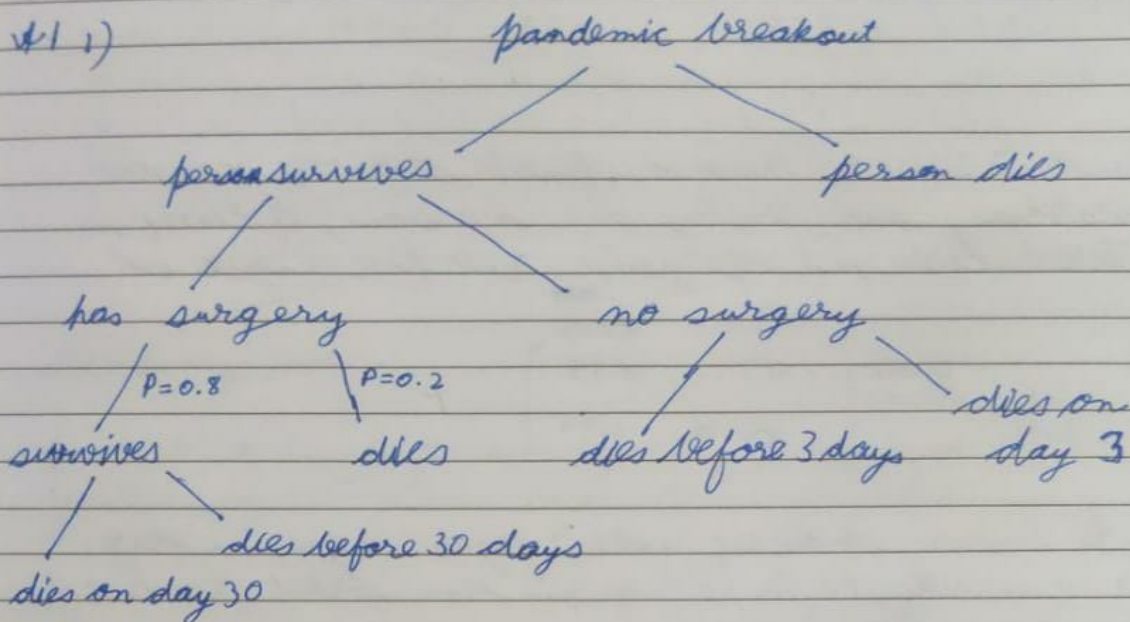 1)
pandemic breakout
person survives
person dies
has surgery
no surgery
P=0.8
P=0.2
survives
dies
dies before 3 days
dies on
day 3
dies before 30 days
dies on day 30